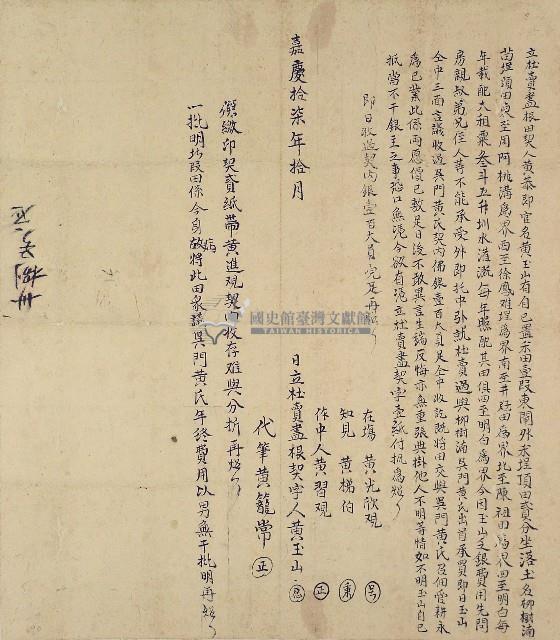 立杜賣盡根田契人黃恭即官名黃玉山有自己置禾田壹段東閘外禾埕頂田貳分坐落土名柳樹湳
苗埕頭田東至用阿桃溝為界西至徐鳳雅埕為界南至井廷田為界北至陳祖田為界四至明白每
年載配大租粟叁斗五升圳水灌溉每年照配其田俱四至明白為界今因玉山乏銀費用先問
房親叔弟兄侄人等不能承受外即托中引就杜賣過與柳樹湳吳門黃氏出首承買即日玉山
仝中三面言議收過吳門黃氏契內佛銀壹百大員足仝中收訖既將田交與吳門黃氏召佃管耕永
為己業此係兩愿價已敷足日後不敢異言生端反悔亦無重張典掛他人不明等情如不明玉山自己
抵當不干銀主之事恐口無憑今欲有憑立杜賣盡契字壹紙付執為炤
即日收過契內銀壹百大員完足再炤
在塲 黃光欣觀
知見 黃梯伯
作中人黃習觀
嘉慶拾柒年拾月 日立杜賣盡根契字人黃玉山
代筆黃籠常
償繳印契貳紙帶黃進現契 收存难與分拆再炤
一批明此段田係今身故將此田衆議吳門黃氏年終費用以男無干批明再炤
國史館臺灣文獻館
TAIWAN HISTORICA